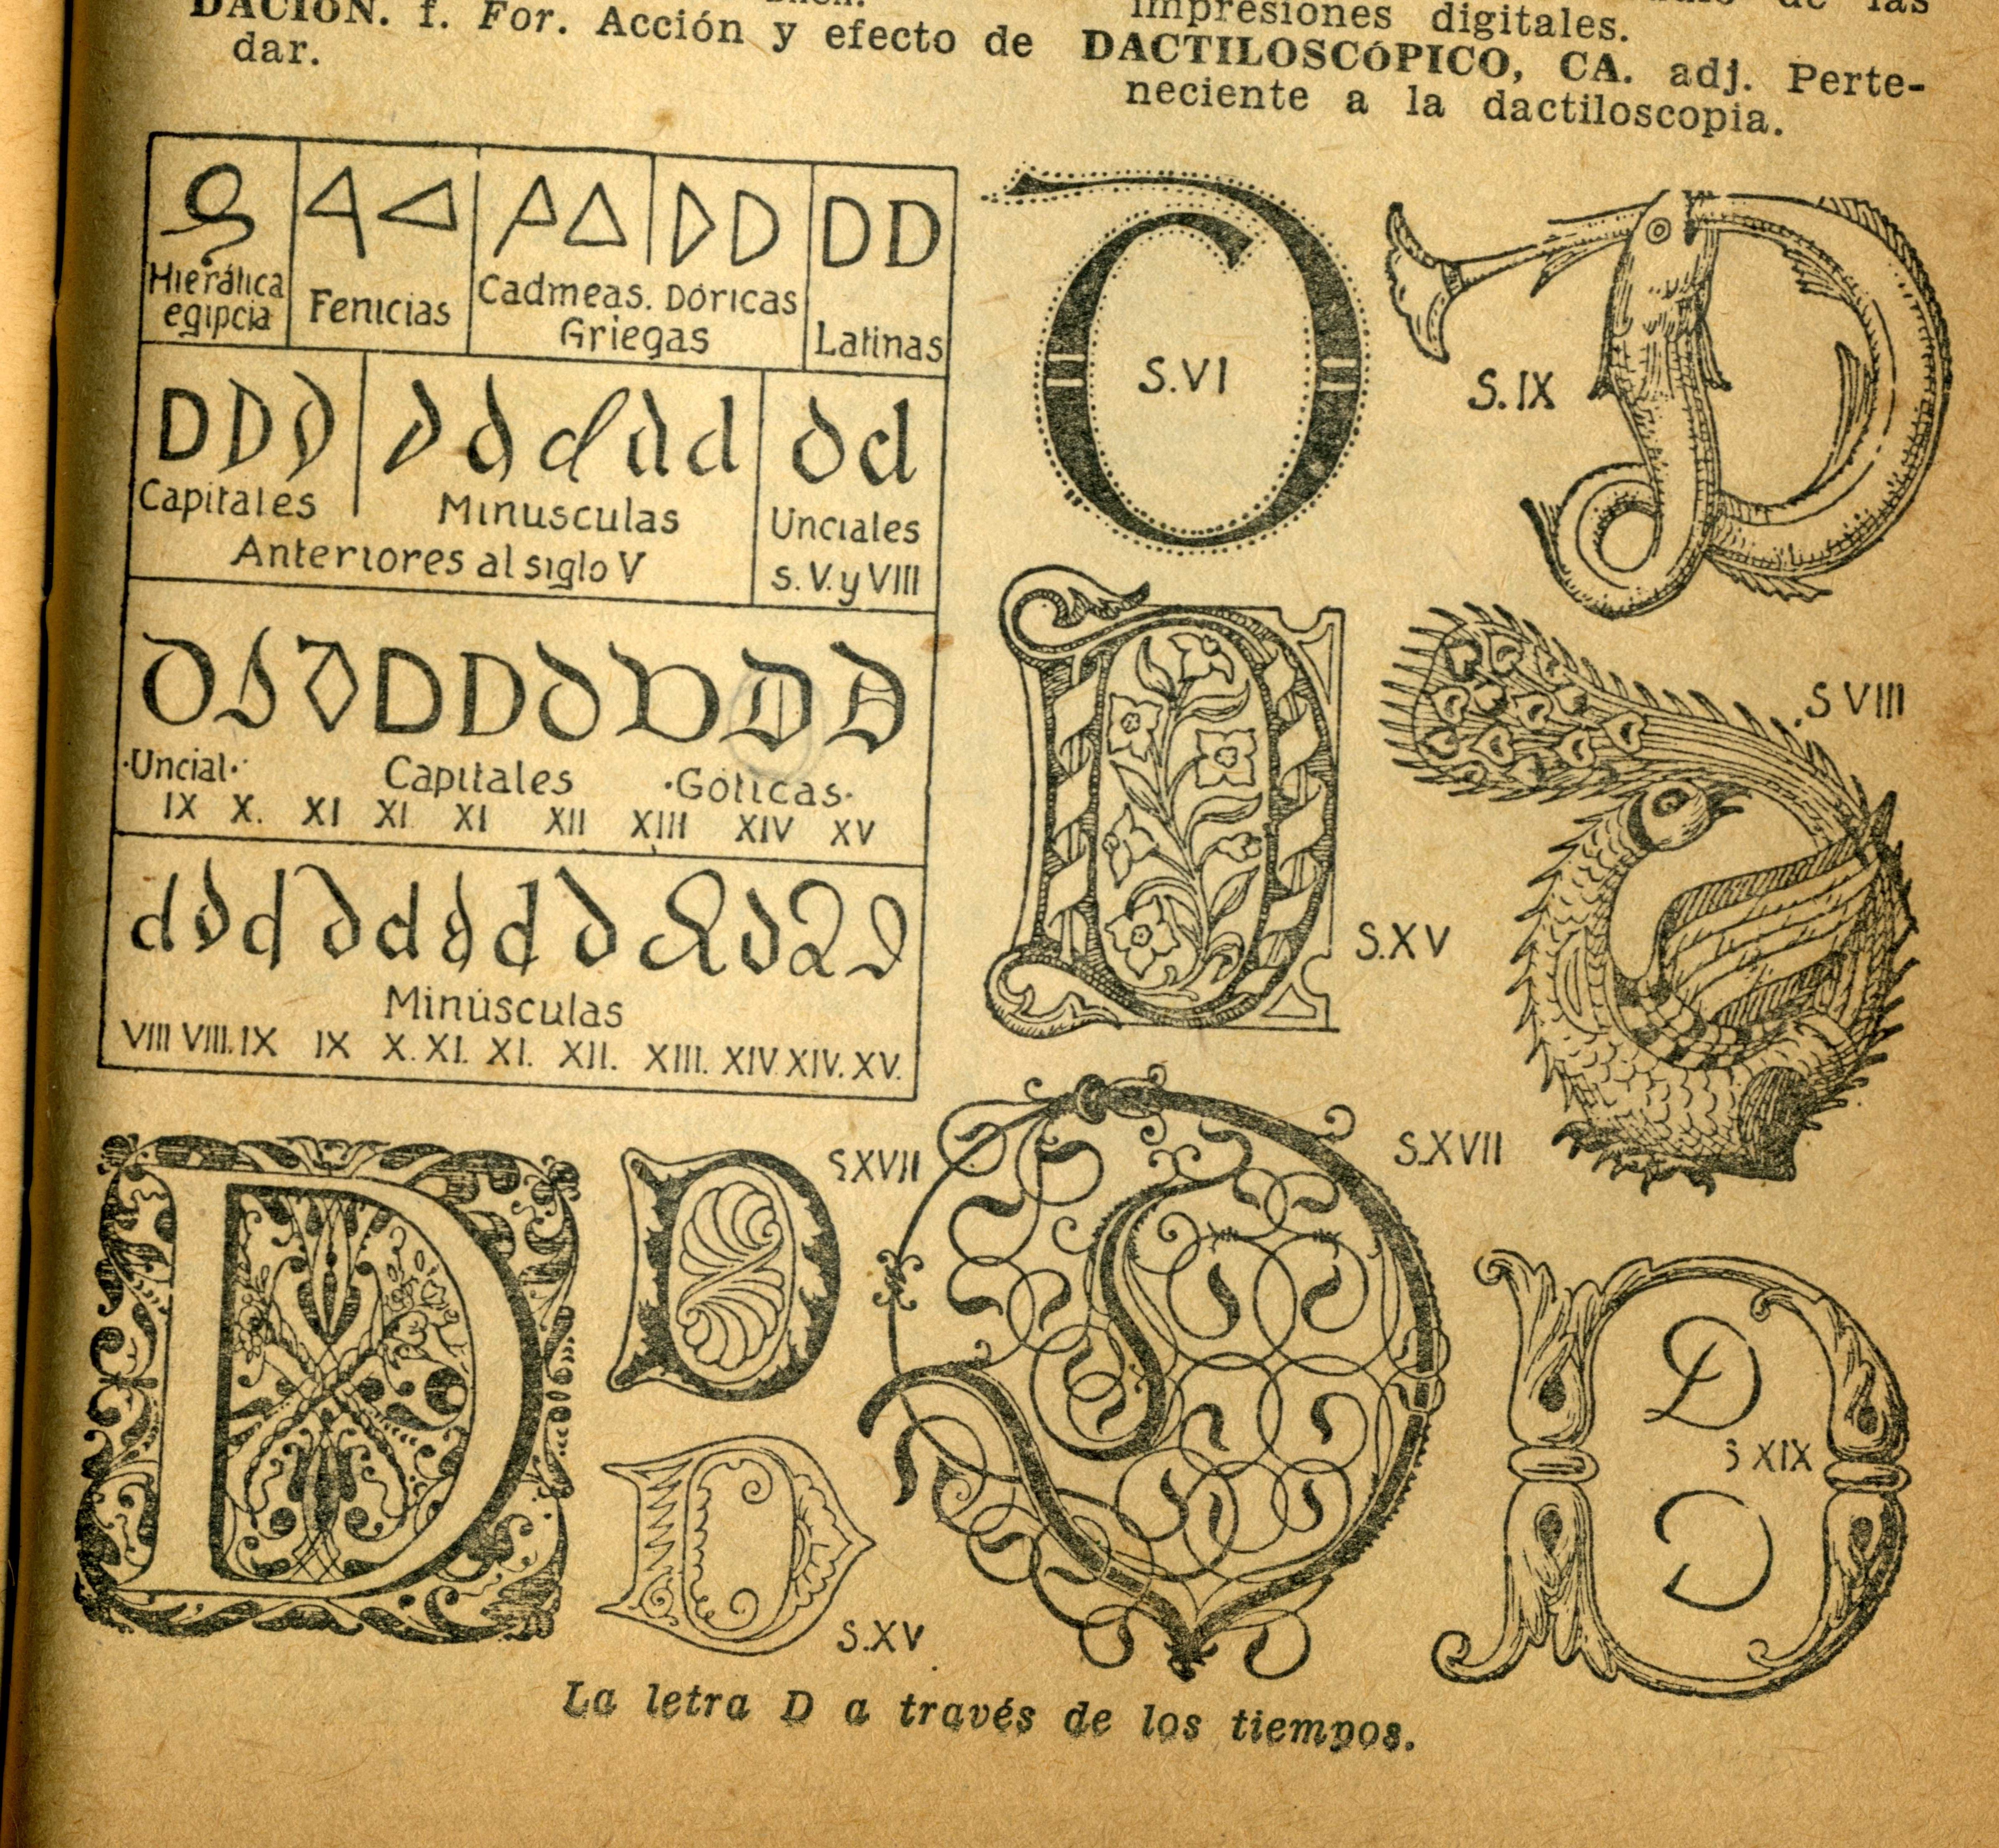 DACIÓN. f. For. Acción y efecto de
dar.
impresiones digitales.
DACTILOSCÓPICO, CA. adj. Perte-
neciente a la dactiloscopia.
Hierática
egipcia
Fenicias
Cadmeas. Dóricas
Griegas
Latinas
Capitales
Minusculas
Anteriores al siglo V
Unciales
s. V. y VIII
·Uncial·
Capitales
·Góticas·
IX X. XI XI XI XII XIII XIV XV
Minúsculas
VIII VIII. IX IX X. XI. XI. XII. XIII. XIV XIV. XV.
S.VI
S.IX
S.XV
S VIII
S.XVII
S.XVII
S.XV
S XIX
La letra D a través de los tiempos.